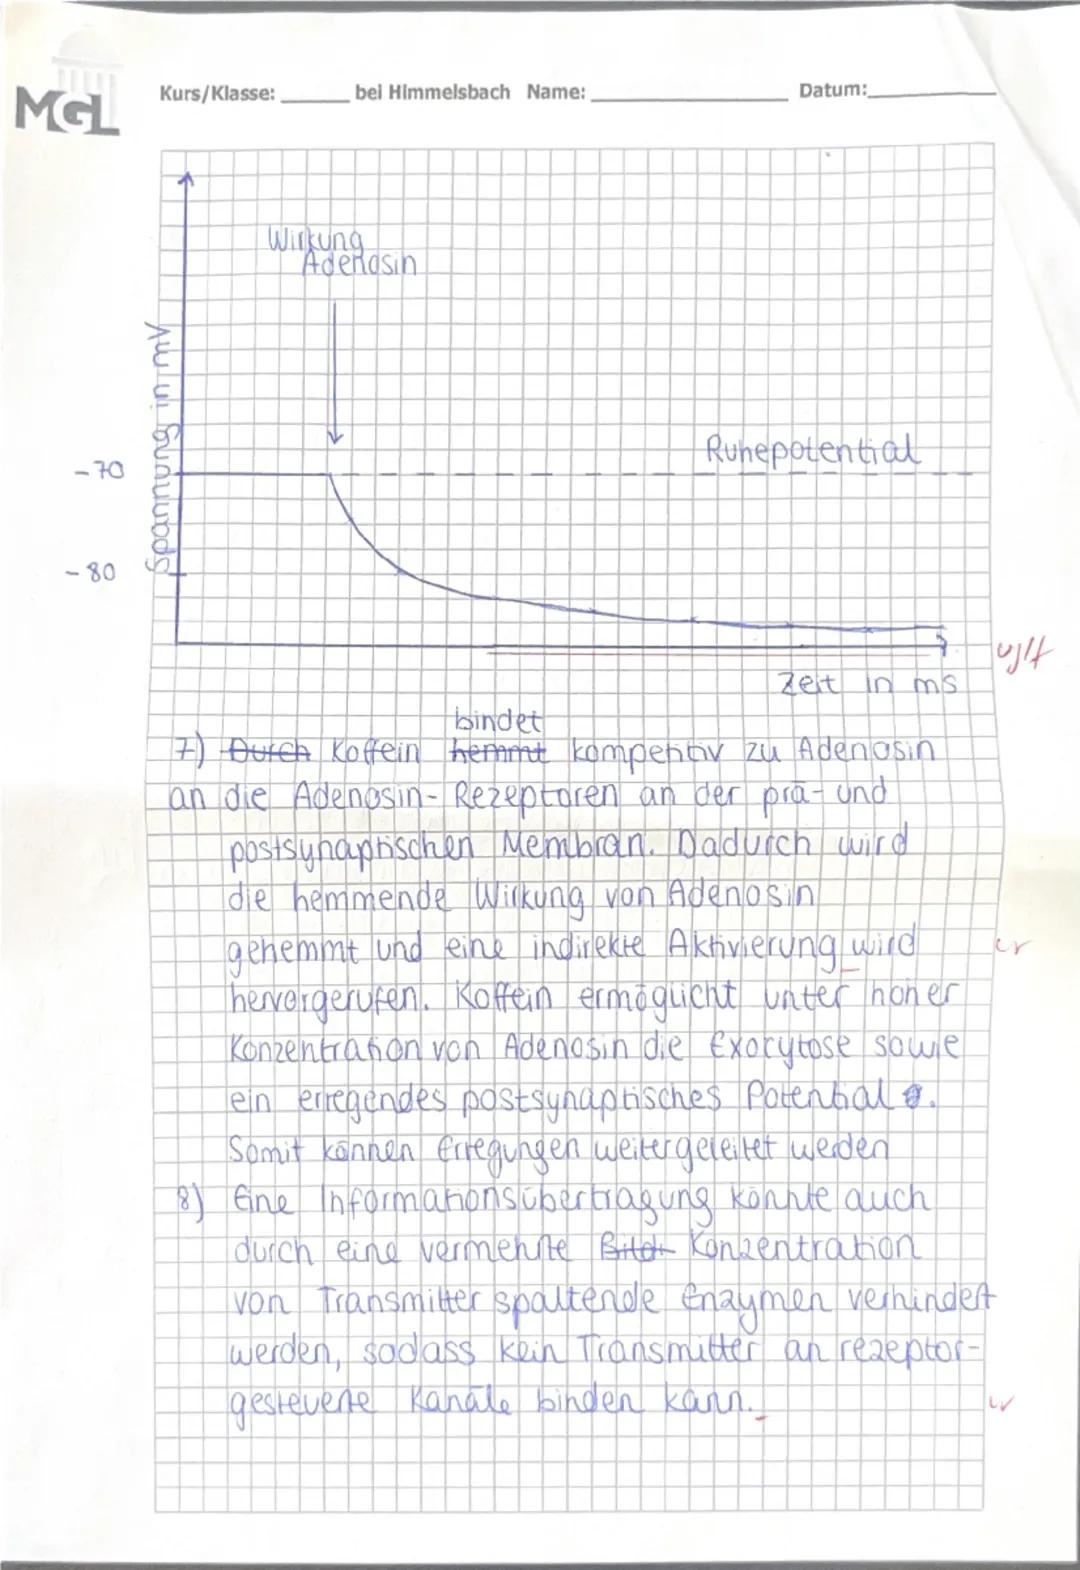 MGL
Kurs/Klasse: ______ bei Himmelsbach Name: ______ Datum: ______
Wirkung
Adenosin
Spannung in mV
Ruhepotential
-70
-80
Zeit in ms
bindet
7) Durch Koffein hemmt kompetitiv zu Adenosin
an die Adenosin-Rezeptoren an der prä- und
postsynaptischen Membran. Dadurch wird
die hemmende Wirkung von Adenosin
gehemmt und eine indirekte Aktivierung wird
hervorgerufen. Koffein ermöglicht unter hoher
Konzentration von Adenosin die Exocytose sowie
ein erregendes postsynaptisches Potential.
Somit können Erregungen weitergeleitet werden
8) Eine Informationsübertragung könnte auch
durch eine vermehrte Konzentration
von Transmitter spaltende Enzymen verhindert
werden, sodass kein Transmitter an rezeptor-
gesteuerte Kanäle binden kann.